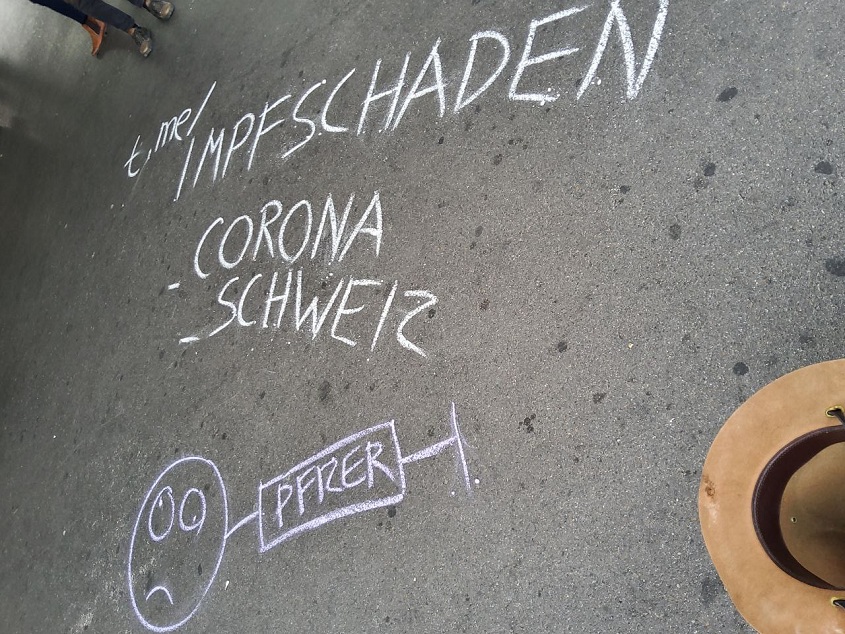 t.me/IMPFSCHADEN
-CORONA
-SCHWEIZ
PFIZER